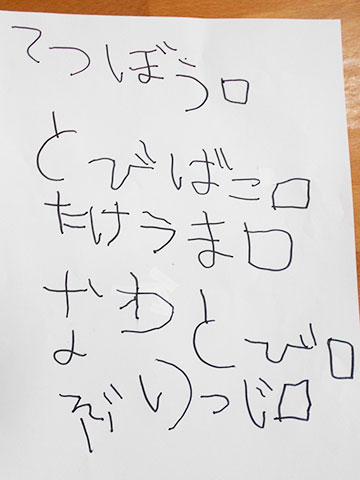 てつぼう□
とびばこ□
たけうま□
なわとび□
ぶりっじ□